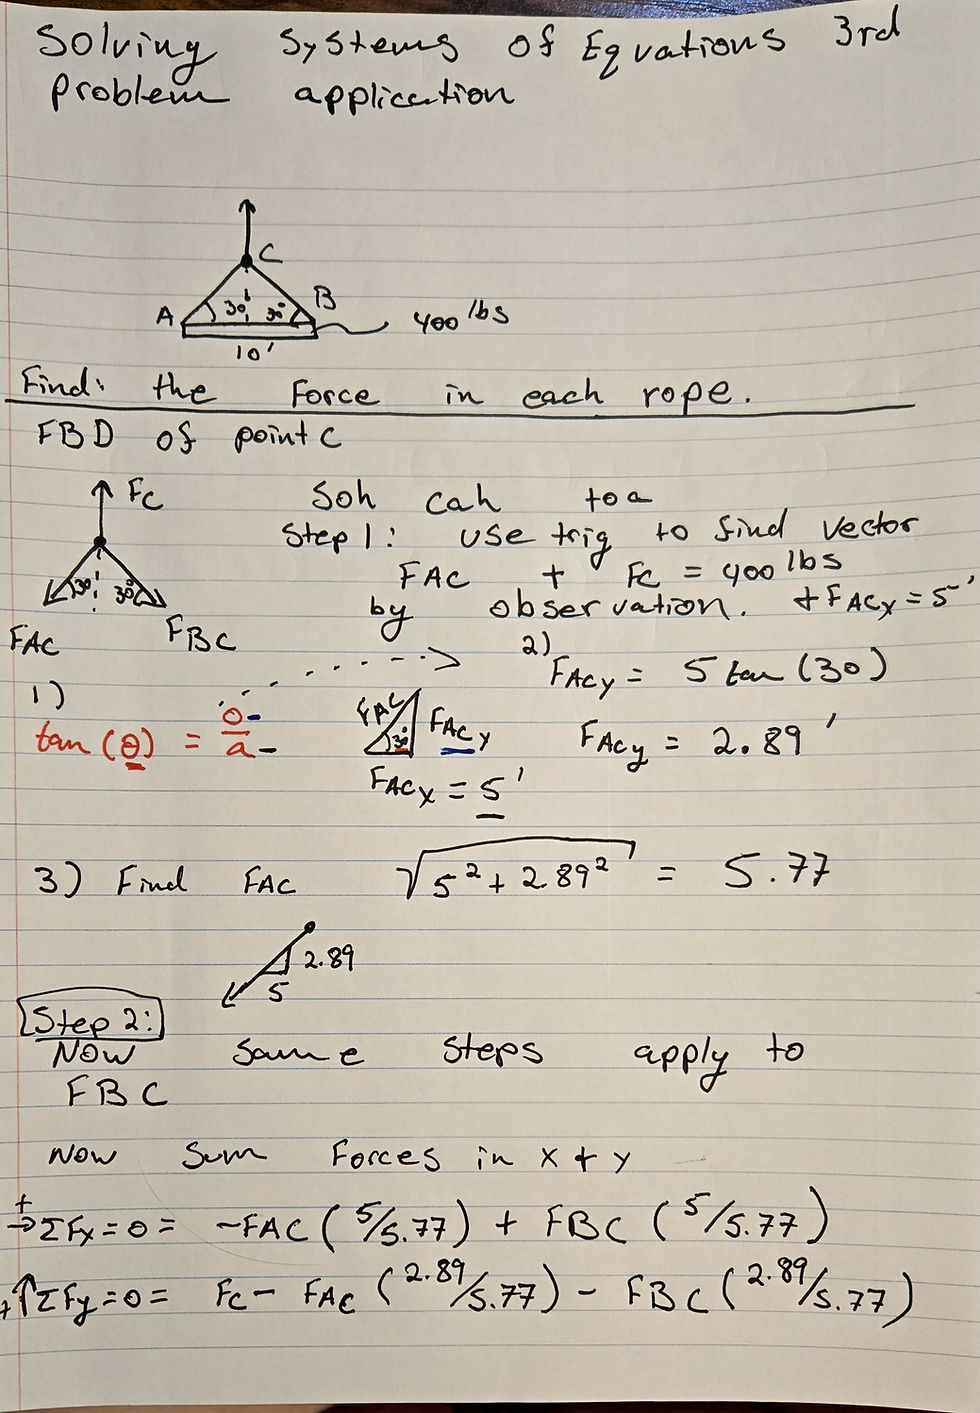 Solving Systems of Equations 3rd
Problem application
C
A 30° 30° B
400 lbs
10'
Find: the Force in each rope.
FBD of point C
FC
30° 30°
FAC FBC
Soh cah toa
Step 1: use trig to find vector
FAC + FC = 400 lbs
by observation. + FACx = 5'
1)
tan(θ) = o/a
FAC 30° FACy
FACx = 5'
2)
FACy = 5 tan(30)
FACy = 2.89'
3) Find FAC √(5² + 2.89²) = 5.77
2.89
5
Step 2:
Now same steps apply to
FBC
Now Sum Forces in x + y
+→ ΣFx = 0 = -FAC (5/5.77) + FBC (5/5.77)
+↑ ΣFy = 0 = FC - FAC (2.89/5.77) - FBC (2.89/5.77)